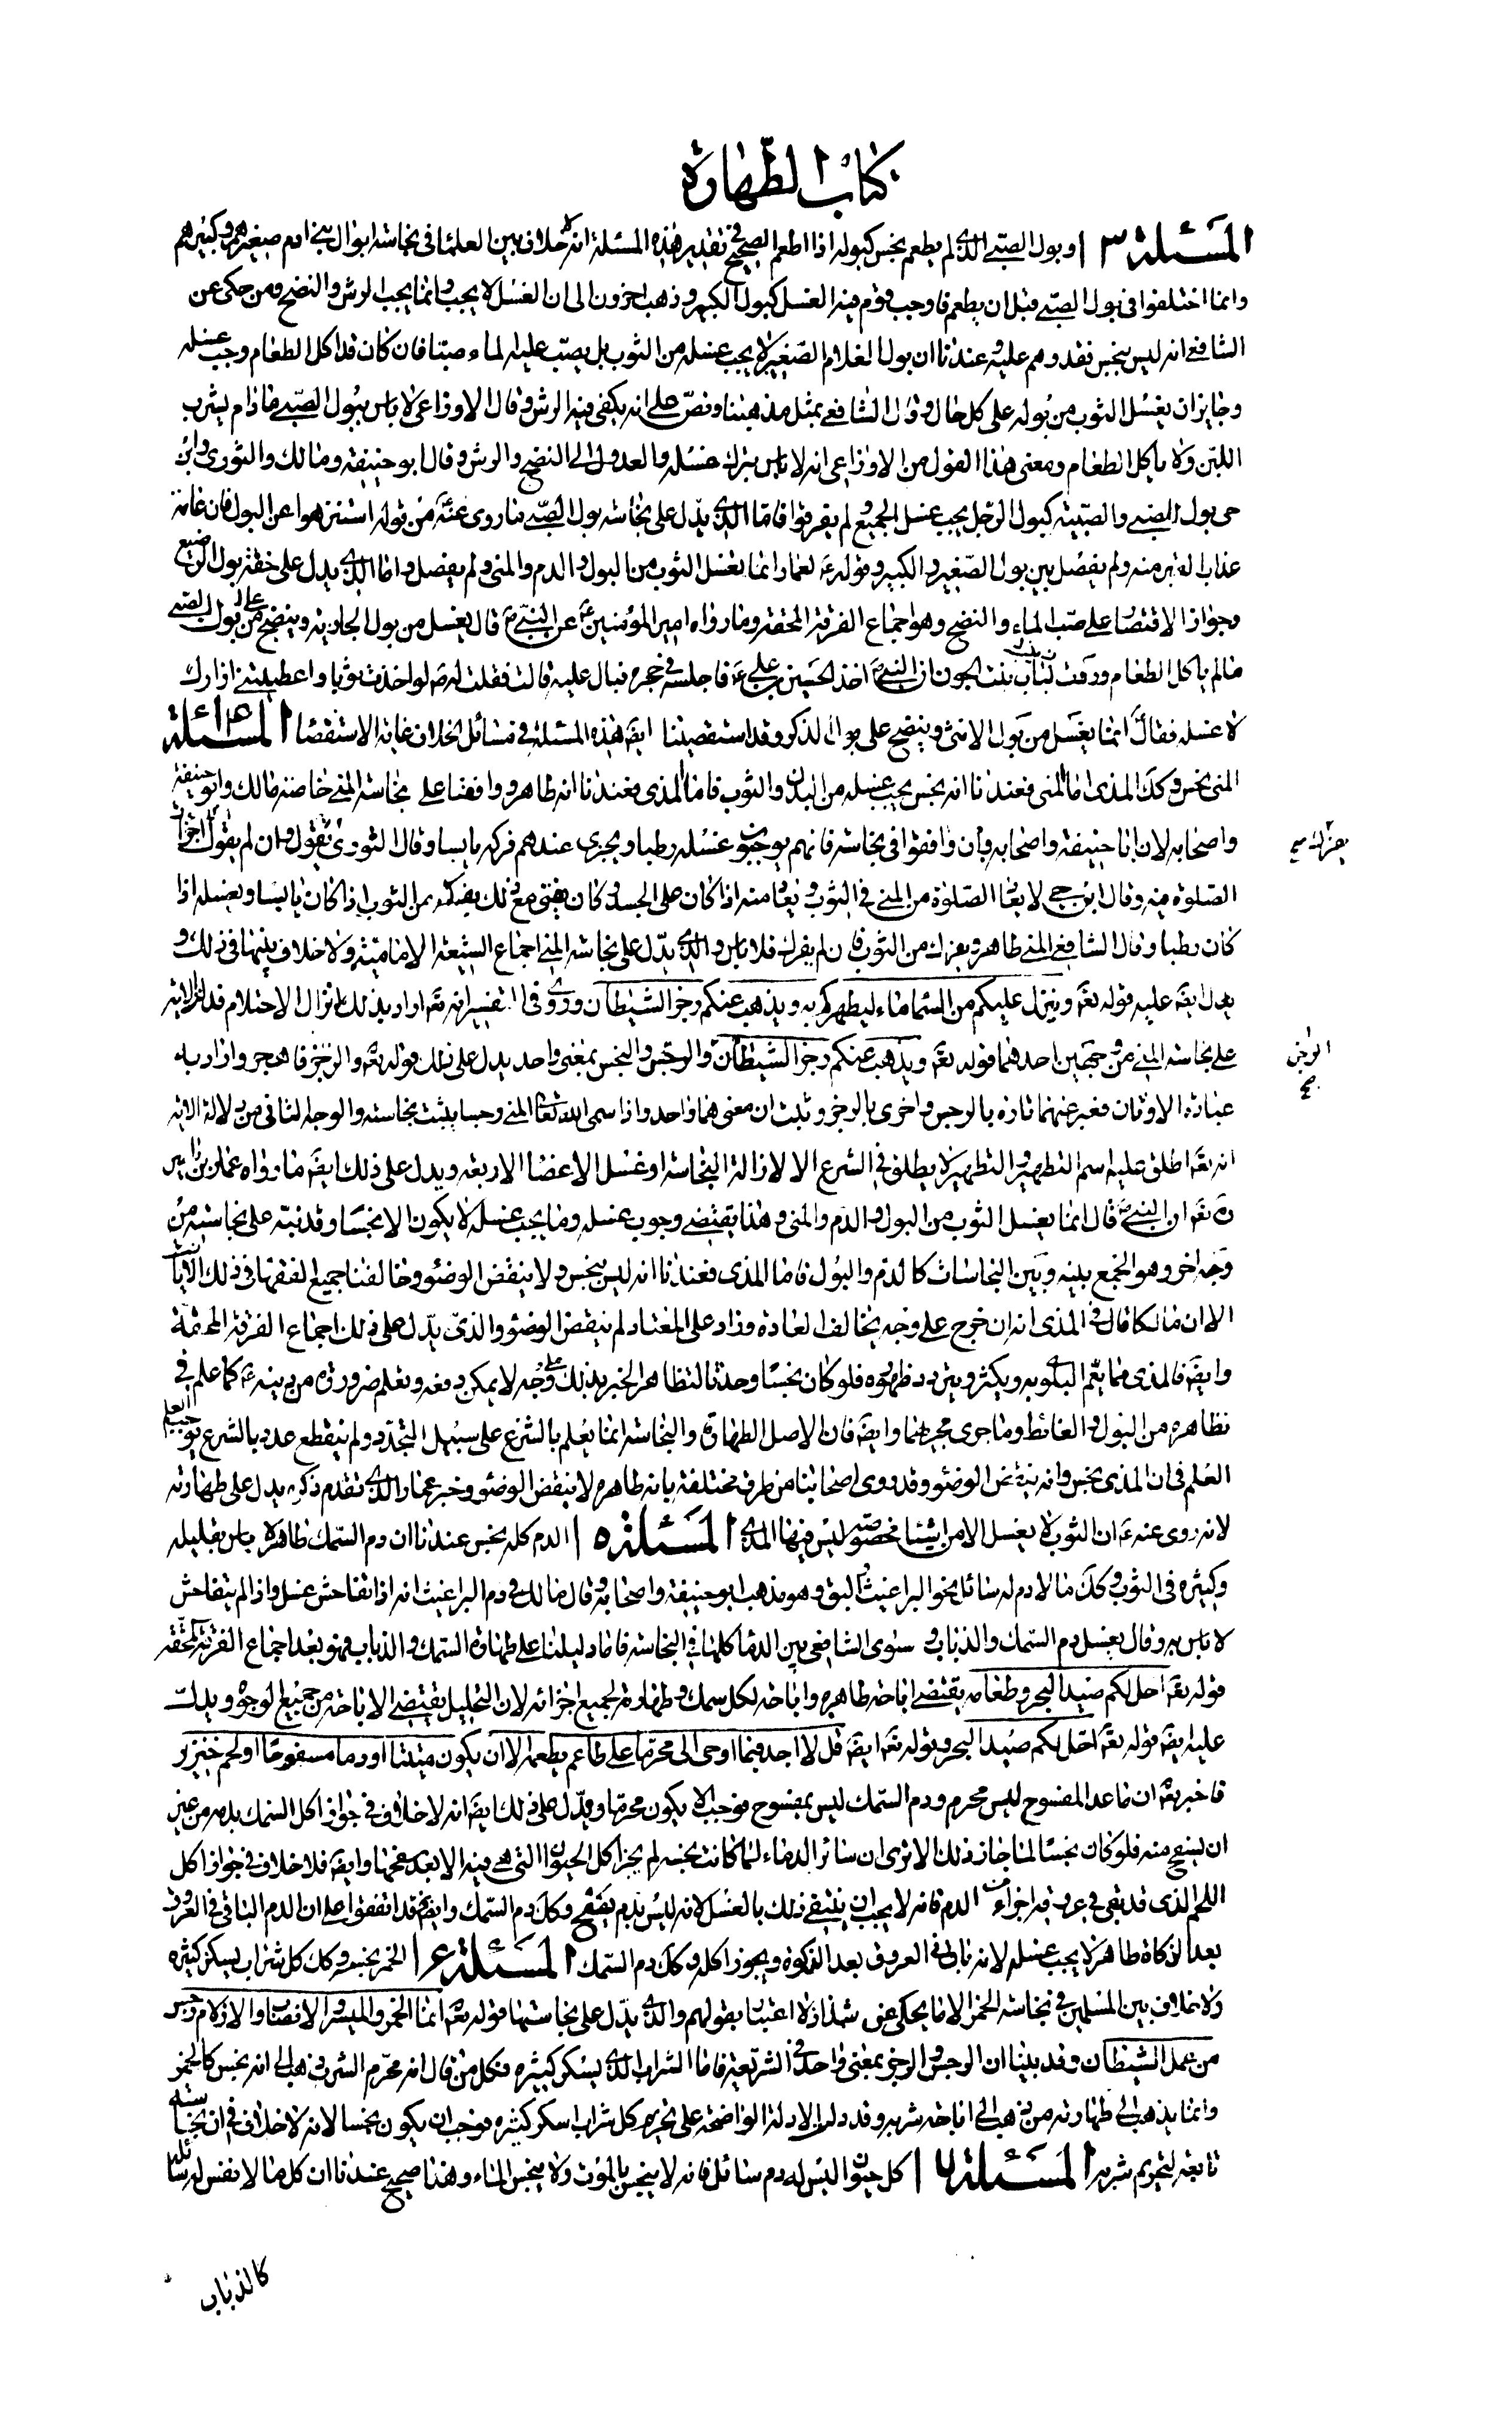 كتاب الطهارة
المسئلة ١٣ وبول الصبي الذي لم يطعم نجس كبوله اذا اطعم الصحيح في تقدير هذه المسئلة انه لا خلاف بين العلماء في نجاسة ابوال بني ادم صغيرهم وكبيرهم
وانما اختلفوا في بول الصبي قبل ان يطعم فاوجب قوم فيه الغسل كبول الكبير وذهب اخرون الى ان الغسل لا يجب وانما يجب الرش والنضح ومن حكى عن
الشافعي انه ليس بنجس فقد وهم عليه وعندنا ان بول الغلام الصغير لا يجب غسله من الثوب بل يصب عليه الماء صبا فان كان قد اكل الطعام وجب غسله
وجايز ان يغسل الثوب من بوله على كل حال وقال الشافعي بمثل مذهبنا ونص على انه يكفي فيه الرش وقال الاوزاعي لا باس ببول الصبي ما دام يشرب
اللبن ولا ياكل الطعام ومعنى هذا القول من الاوزاعي انه لا باس بترك غسله والعدول الى النضح والرش وقال ابو حنيفة ومالك والثوري وابن
حي بول الصبي والصبية كبول الرجل يجب غسل الجميع ولم يفرقوا فاما الذي يدل على نجاسة بول الصبي ما روى عنه من قوله استنزهوا عن البول فان عامة
عذاب القبر منه ولم يفصل بين بول الصغير والكبير وقوله ع لعمار انما يغسل الثوب من البول والدم والمني ولم يفصل واما الذي يدل على خفة بول الرضيع
وجواز الاقتصار على صب الماء والنضح وهو اجماع الفرقة المحقة وما رواه امير المؤمنين ع عن النبي ص قال يغسل من بول الجارية وينضح على بول الصبي
ما لم ياكل الطعام وروت لبابة بنت الجون ان النبي ص اخذ الحسين بن علي ع فاجلسه في حجره فبال عليه قالت فقلت له لو اخذت ثوبا واعطيتني ازارك
لاغسله فقال انما يغسل من بول الانثى وينضح على بول الذكر وقد استقصينا ايضا هذه المسئلة في مسائل الخلاف غاية الاستقصا المسئلة ١٤
المني نجس وكك المذى اما المني فعندنا انه نجس يجب غسله من البدن والثوب فاما المذى فعندنا انه طاهر ووافقنا على نجاسة المني خاصة مالك وابو حنيفة
واصحابه لان ابا حنيفة واصحابه وان وافقوا في نجاسته فانهم يوجبون غسله رطبا ويجزى عندهم فركه يابسا وقال الثوري يفرك وان لم يفرك اجزات
الصلوة فيه وقال ابن حي لا يعاد الصلوة من المني في الثوب ويعاد منه اذا كان على الجسد وكان يفتي مع ذلك بفركه من الثوب اذا كان يابسا وبغسله اذا
كان رطبا وقال الشافعي المني طاهر ويفرك من الثوب فان لم يفرك فلا باس والذي يدل على نجاسة المني اجماع الشيعة الامامية ولا خلاف بينها في ذلك و
يدل ايضا عليه قوله تع وينزل عليكم من السماء ماء ليطهركم به ويذهب عنكم رجز الشيطان وروى في التفسير انه تع اراد بذلك اثر الاحتلام فدلت الاية
على نجاسة المني من وجهين احدهما قوله تع ويذهب عنكم رجز الشيطان والرجس والنجس بمعنى واحد يدل على ذلك قوله تع والرجز فاهجر واراد به
عبادة الاوثان فعبر عنهما تارة بالرجس واخرى بالرجز وثبت ان معنى هما واحد واذا سمى الله تعالى المني رجسا يثبت نجاسته والوجه الثاني من دلالة الاية
انه تع اطلق عليه اسم التطهير والتطهير لا يطلق في الشرع الا لازالة النجاسة او غسل الاعضا الاربعة ويدل على ذلك ايضا ما رواه عمار بن ياسر
ره ان النبي ص قال انما يغسل الثوب من البول والدم والمني وهذا يقتضي وجوب غسله وما يجب غسله لا يكون الا نجسا وقد نبه على نجاسته من
وجه اخر وهو الجمع بينه وبين النجاسات كالدم والبول فاما المذى فعندنا انه ليس بنجس ولا ينقض الوضوء وخالفنا جميع الفقها في ذلك
الا ان مالكا قال في المذى انه ان خرج على وجه يخالف العادة وزاد على المعتاد لم ينقض الوضوء والذي يدل على ذلك اجماع الفرقة المحقة
وايضا فالمذى مما يعم البلوى به ويكثر ويتردد ظهوره فلو كان نجسا وحدثا لتظاهر الخبر بذلك على وجه لا يمكن دفعه ويعلم ضرورة من دينه ع كما علم في
نظائره من البول والغائط وما جرى مجراهما وايضا فان الاصل الطهارة والنجاسة انما يعلم بالشرع على سبيل التجدد ولم ينقطع عذر بالشرع يوجب العلم
العلم في ان المذى نجس وانه ينقض الوضوء وقد روى اصحابنا من طرق مختلفة بانه طاهر لا ينقض الوضوء وخبر عمار الذي تقدم ذكره يدل على طهارته
لانه روى عنه ع ان الثوب لا يغسل الا من اشيا مخصوصة ليس فيها المذى المسئلة ١٥ الدم كله نجس عندنا ان دم السمك طاهر لا باس بقليله
وكثيره في الثوب وكذلك ما لا دم له سائل نحو البراغيث والبق وهو مذهب ابو حنيفة واصحابه وقال مالك في دم البراغيث انه اذا تفاحش غسل واذا لم يتفاحش
لا باس به وقال يغسل دم السمك والذباب وسوى الشافعي بين الدماء كلها في النجاسة فاما دليلنا على طهارة السمك والذباب فهو بعد اجماع الفرقة المحقة
قوله تع احل لكم صيد البحر وطعامه يقتضي اباحة ظاهره واباحة لكل سمك وطهارة لجميع اجزائه لان التحليل يقتضي الاباحة من جميع الوجوه ويدل
عليه ايضا قوله تع احل لكم صيد البحر وقوله تع ايضا قل لا اجد فيما اوحى الى محرما على طاعم يطعمه الا ان يكون ميتة او دما مسفوحا او لحم خنزير
فاخبر تع ان ما عدا المسفوح ليس بمحرم ودم السمك ليس بمسفوح فوجب الا يكون محرما ويدل على ذلك ايضا انه لا خلاف في جواز اكل السمك بدمه من غير
ان يسفح منه فلو كان نجسا لما جاز ذلك الا ترى ان سائر الدماء لما كانت نجسه لم يجز اكل الحيوان التي هي فيه الا بعد سفحها وايضا فلا خلاف في جواز اكل
اللحم الذي قد بقى في عروقه اجزاء من الدم فانه لا يجب ان ينتقى ذلك بالغسل لانه ليس بدم يسفح وكذلك دم السمك وايضا فقد اتفقوا على ان الدم الباقي في العروق
بعد الذكاة طاهر لا يجب غسله لانه باق في العروق بعد الذكوة ويجوز اكله وكذلك دم السمك المسئلة ١٦ الخمر نجسة وكك كل شراب يسكر كثيره
ولا خلاف بين المسلمين في نجاسة الخمر الا ما يحكى عن شذاذ لا اعتبار بقولهم والذي يدل على نجاستها قوله تع انما الخمر والميسر والانصاب والازلام رجس
من عمل الشيطان وقد بينا ان الرجس والرجز بمعنى واحد في الشريعة فاما الشراب الذي يسكر كثيره فكل من قال انه محرم الشرب ذهب الى انه نجس كالخمر
وانما يذهب الى طهارته من ذهب الى اباحة شربه وقد دلت الادلة الواضحة على تحريم كل شراب اسكر كثيره فوجب ان يكون نجسا لانه لا خلاف في ان نجاسته
تابعة لتحريم شربه المسئلة ١٧ كل حيوان ليس له دم سائل فانه لا ينجس بالموت ولا ينجس الماء وهذا صحيح عندنا ان كل ما لا نفس له سائلة
كالذباب